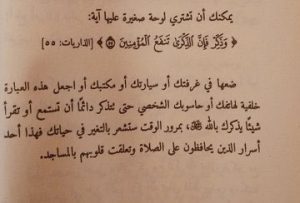 يمكنك أن تشتري لوحة صغيرة عليها آية:
﴿ وَذَكِّرْ فَإِنَّ الذِّكْرَىٰ تَنفَعُ الْمُؤْمِنِينَ ۝ ﴾ [الذاريات: ٥٥]
ضعها في غرفتك أو سيارتك أو مكتبك أو اجعل هذه العبارة
خلفية لهاتفك أو حاسوبك الشخصي حتى تتذكر دائمًا أن تستمع أو تقرأ
شيئًا يذكرك بالله ﷻ، بمرور الوقت ستشعر بالتغير في حياتك فهذا أحد
أسرار الذين يحافظون على الصلاة وتعلقت قلوبهم بالمساجد.